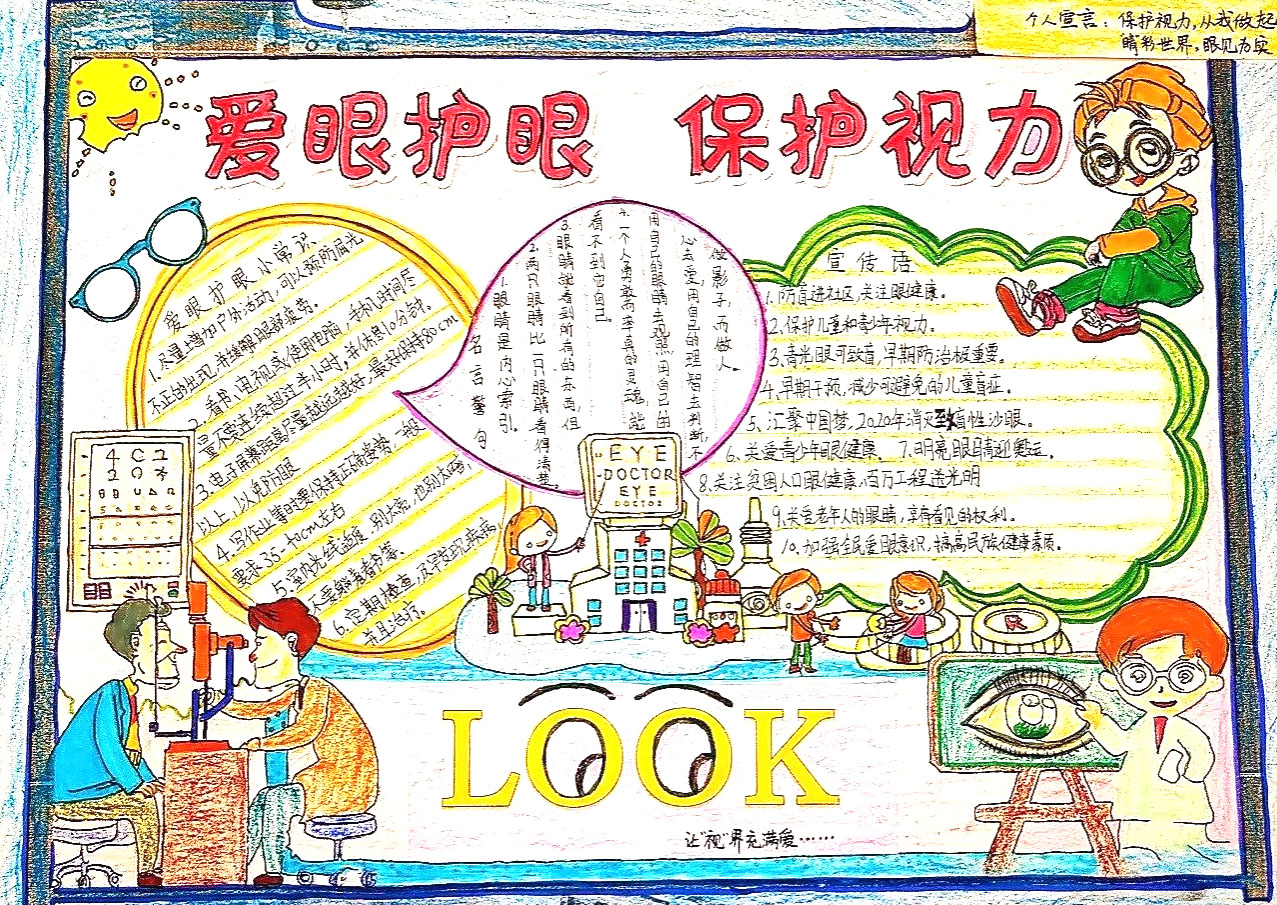 个人宣言：保护视力，从我做起
"睛"彩世界，眼见为实
爱眼护眼 保护视力
爱眼护眼小常识
1. 尽量增加户外活动，可以预防屈光
不正的出现，并缓解眼部疲劳。
2. 看书、用视或使用电脑，手机时间尽
量不要连续超过半小时，并休息10分钟。
3. 电子屏幕距离尽量越远越好，最好保持80cm
以上，以
4. 写作业等时要保持正确姿势，一般
要求35-40cm左右
5. 室内光线适宜，别太亮，也别太暗，
不要躺着看书等。
6. 定期检查，及早发现疾病，
并且治疗。
名言警句
1. 眼睛是内心索引。
2. 两只眼睛比一只眼睛看得清楚。
3. 眼睛能看到所有的东西，但
看不到它自己。
4. 一个人要拿率真的灵魂，能
用自己的眼睛去观照，用自己的
心去爱，用自己的理智去判断，不
做影子，而做人。
宣传语
1. 防盲进社区，关注眼健康。
2. 保护儿童和青少年视力。
3. 青光眼可致盲，早期防治极重要。
4. 早期干预，减少可避免的儿童盲症。
5. 汇聚中国梦，2020年消灭致盲性沙眼。
6. 关爱青少年眼健康。 7. 明亮眼睛迎奥运。
8. 关注贫困人口眼健康，百万工程送光明
9. 关爱老年人的眼睛，享有看见的权利。
10. 加强全民爱眼意识，提高民族健康素质。
EYE
DOCTOR
EYE
DOCTOR
LOOK
让"视"界充满爱……